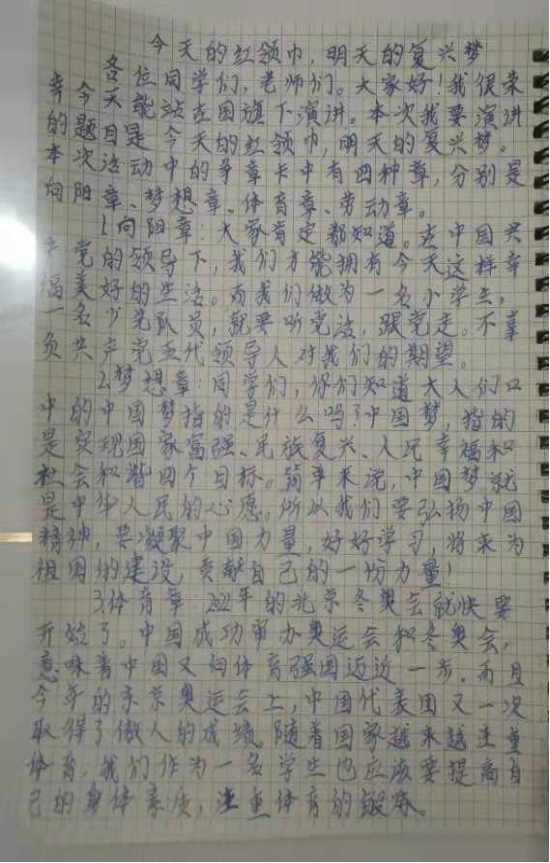 今天的红领巾,明天的复兴梦
各位同学们,老师们。大家好!我很荣
幸今天能站在国旗下演讲。本次我要演讲
的题目是今天的红领巾,明天的复兴梦。
本次活动中的争章卡中有四种章,分别是
向阳章、梦想章、体育章、劳动章。
1.向阳章:大家肯定都知道。在中国共
产党的领导下,我们才能拥有今天这样幸
福美好的生活。而我们做为一名小学生,
一名少先队员,就要听党话,跟党走。不辜
负共产党五代领导人对我们的期望。
2.梦想章:同学们,你们知道大人们口
中的中国梦指的是什么吗?中国梦,指的
是实现国家富强、民族复兴、人民幸福和
社会和谐四个目标。简单来说,中国梦就
是中华人民的心愿。所以我们要弘扬中国
精神,要凝聚中国力量,好好学习,将来为
祖国的建设,贡献自己的一份力量!
3.体育章:2022年的北京冬奥会就快要
开始了。中国成功审办奥运会和冬奥会,
意味着中国又向体育强国迈近一步。而且
今年的东京奥运会上,中国代表团又一次
取得了傲人的成绩。随着国家越来越注重
体育,我们作为一名学生也应该要提高自
己的身体素质,注重体育的锻炼。